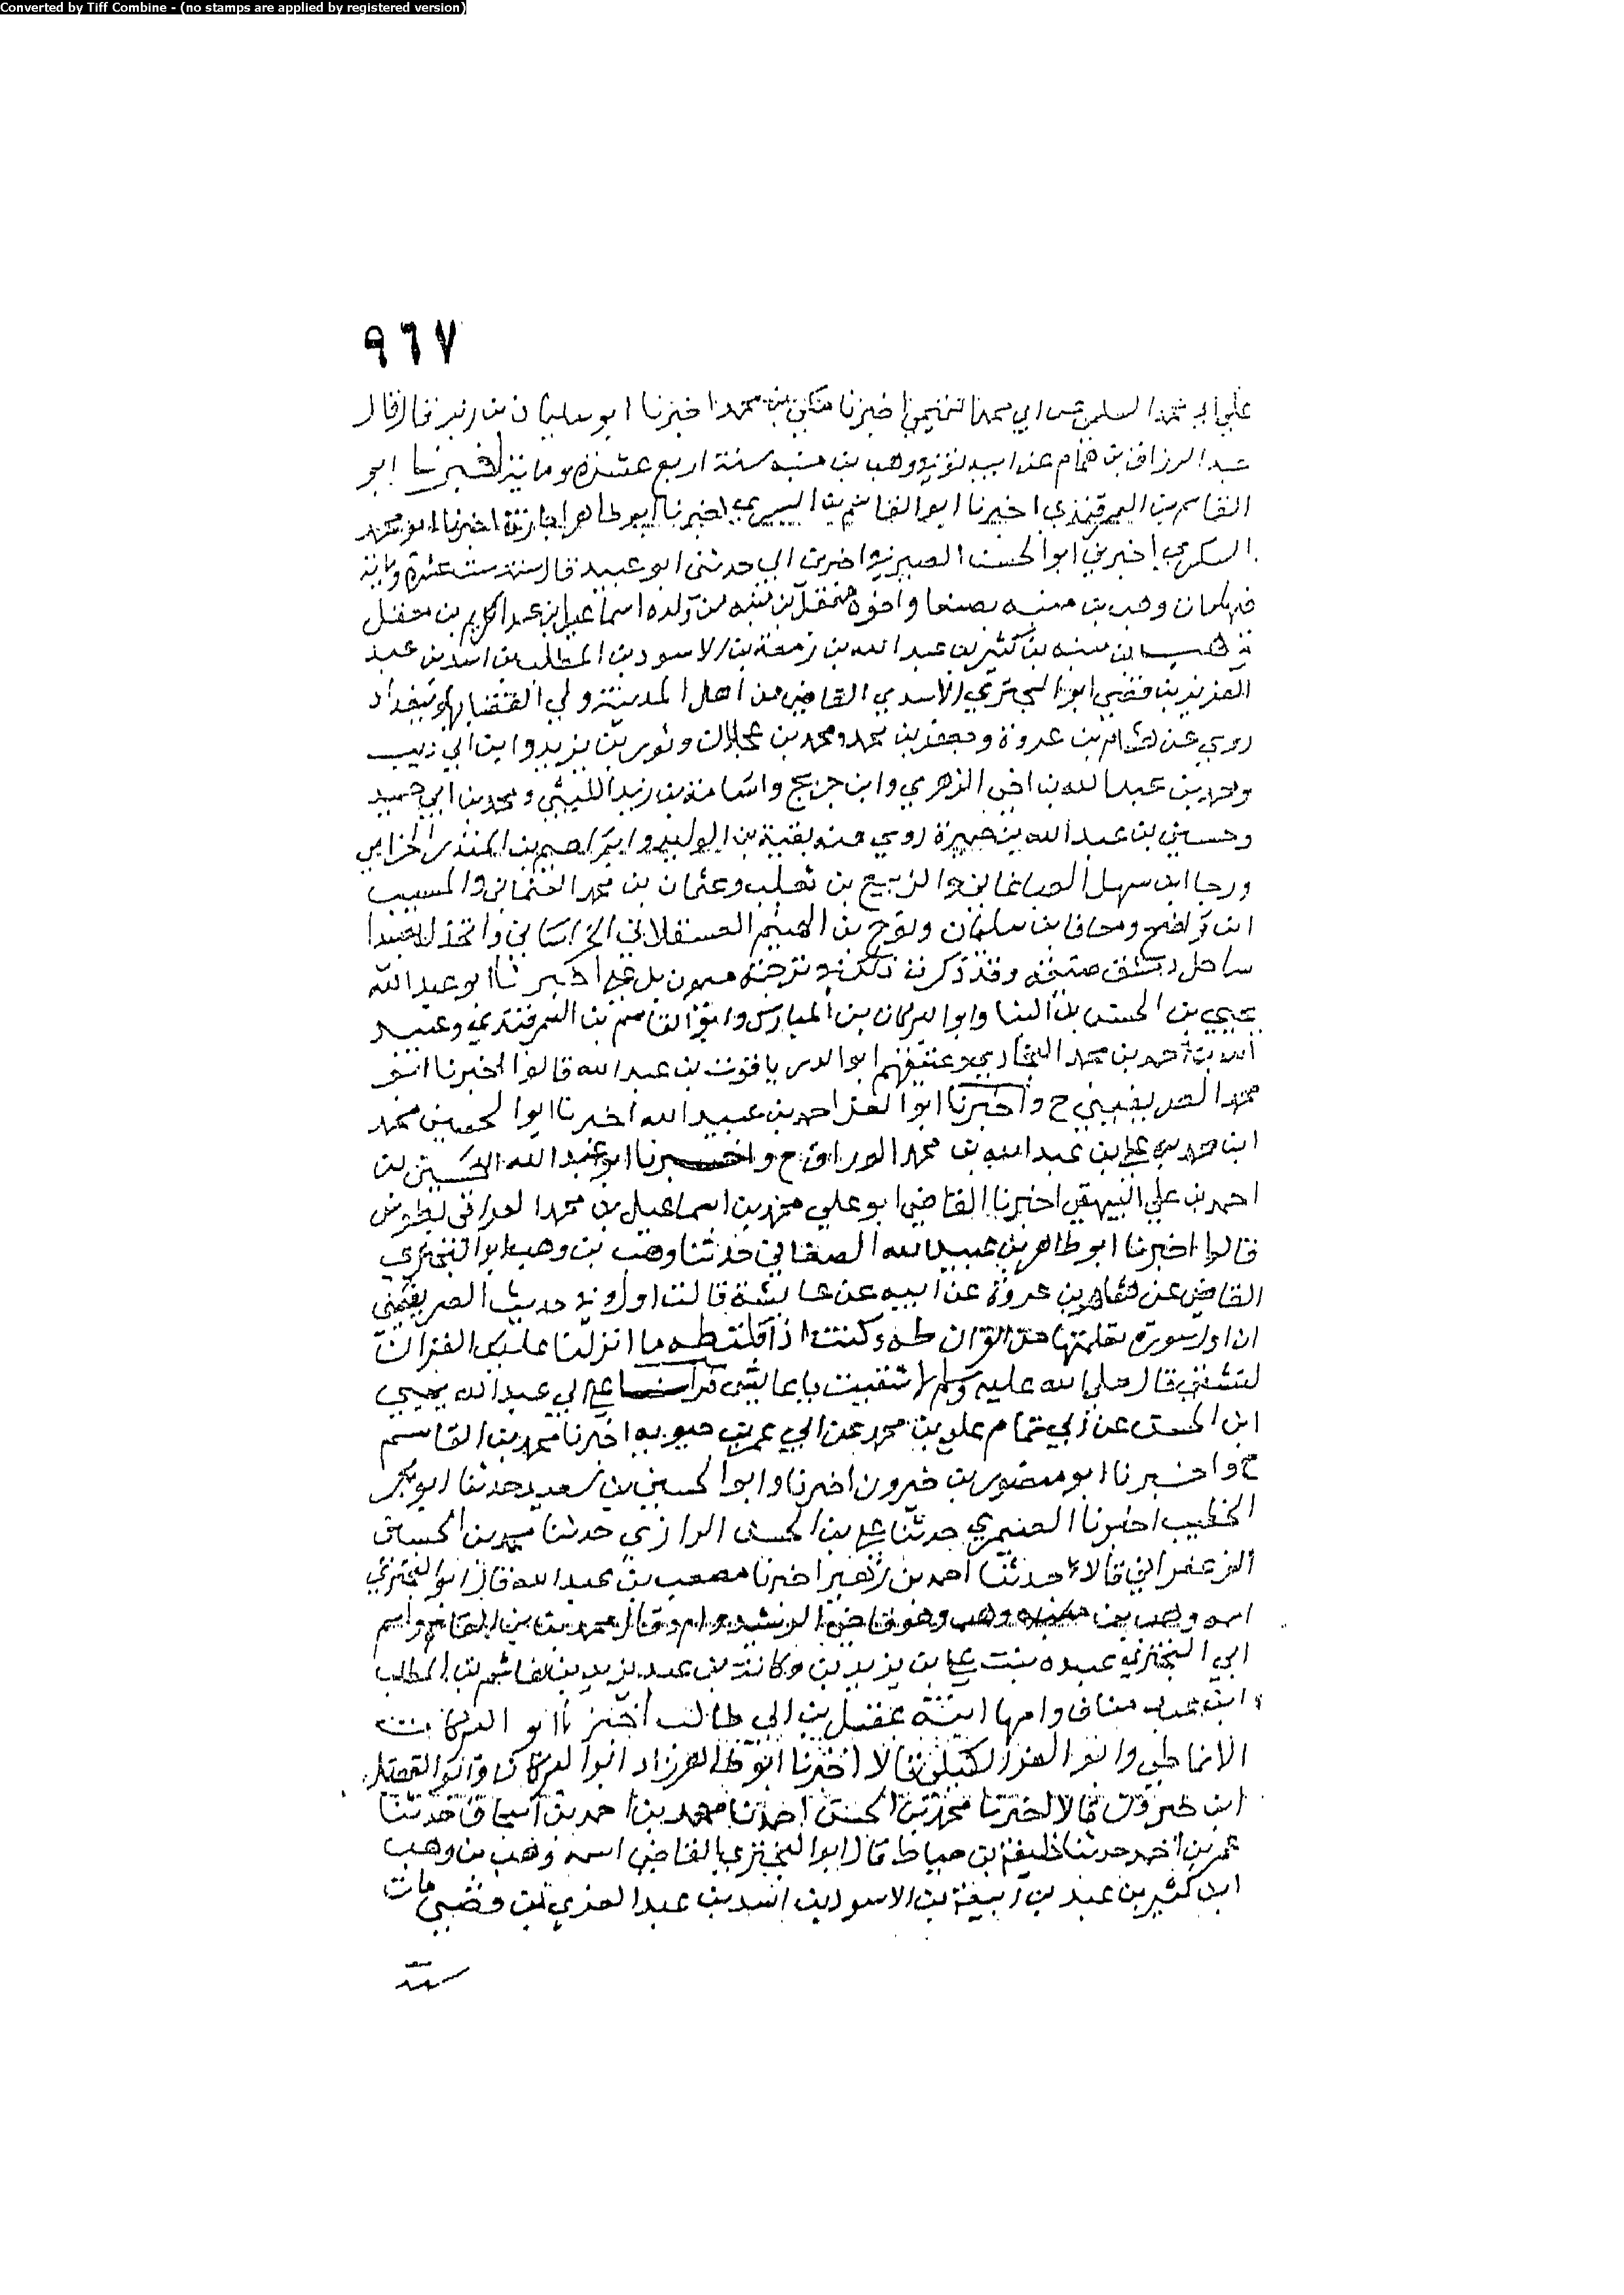 Converted by Tiff Combine - (no stamps are applied by registered version)
٩٦٧
علي ابي محمد السلمي عن ابي محمد التميمي اخبرنا مكي بن محمد اخبرنا ابو سليمان بن زبر قال قال
عبد الرزاق بن همام عن ابيه توفي وهب بن منبه سنة اربع عشرة وماية اخبرنا ابو
القاسم بن السمرقندي اخبرنا ابو القاسم بن البسري اخبرنا ابو طاهر اجازة اخبرنا ابو محمد
السكري اخبرني ابو الحسن الصيرفي اخبرني ابي حدثني ابو عبيد قال سنة ست عشرة وماية
فيها مات وهب بن منبه بصنعا واخوه معقل بن منبه من ولده اسماعيل بن عبد الكريم بن معقل
بن منبه بن كثير بن عبد الله بن زمعة بن الاسود بن المطلب بن اسد بن عبد
العزيز بن قصي ابو البختري الاسدي القاضي من اهل المدينة ولي القضا بها وببغداد
روي عن هشام بن عروة وجعفر بن محمد ومحمد بن عجلان وثور بن يزيد وابن ابي ذيب
ومحمد بن عبد الله بن اخي الزهري وابن جريج واسامة بن زيد الليثي ومحمد بن ابي حميد
وحسين بن عبد الله بن ضميرة روي عنه بقية بن الوليد وابراهيم بن المنذر الحزامي
ورجا ابن سهل الصاغاني والربيع بن ثعلب وعثمان بن محمد العثماني والمسيب
ابن واضح ومعافا بن سليمان ونوح بن الهيثم العسقلاني الخراساني واتخذ لصيدا
ساحل دمشق ضيعة وقد ذكرت ذلك في ترجمة ميمون بن علي اخبرنا ابو عبد الله
يحيي بن الحسن بن البنا وابو البركات بن المبارك وابو القاسم بن السمرقندي وعبد
الله بن احمد بن محمد البخاري وعتيقهم ابو الدر ياقوت بن عبد الله قالوا اخبرنا ابو
محمد الصريفيني ح واخبرنا ابو العز احمد بن عبيد الله اخبرنا ابو الحسين محمد
ابن محمد بن علي بن عبد الله بن محمد الوراق ح واخبرنا ابو عبد الله الحسين بن
احمد بن علي البيهقي اخبرنا القاضي ابو علي محمد بن اسماعيل بن محمد العراقي بطوس
قالوا اخبرنا ابو طاهر بن عبيد الله الصغاني حدثنا وهب بن وهب ابو البختري
القاضي عن هشام بن عروة عن ابيه عن عايشة قالت اول وفي حديث الصريفيني
ان اول سورة تعلمتها من القران طه وكنت اذا قلت طه ما انزلنا عليك القران
لتشقى قال صلى الله عليه وسلم لا شقيت يا عايش قرات على ابي عبد الله يحيي
ابن الحسن عن ابي تمام علي بن محمد عن ابي عمر بن حيويه اخبرنا محمد بن القاسم
ح واخبرنا ابو منصور بن خيرون اخبرنا وابو الحسين بن سعيد حدثنا ابو بكر
الخطيب اخبرنا الصيمري حدثنا علي بن الحسن الرازي حدثنا محمد بن الحسين
الزعفراني قالا حدثنا احمد بن زهير اخبرنا مصعب بن عبد الله قال ابو البختري
اسمه وهب بن وهب وهو قاضي الرشيد وام وقال محمد بن القاسم واسم
ابي البختري عبده بنت علي بن يزيد بن ركانة بن عبد يزيد بن هاشم بن المطلب
ابن عبد مناف وامها ابنة عقيل بن ابي طالب اخبرنا ابو البركات
الانماطي وابو العز الكيلي قالا اخبرنا ابو طاهر زاد ابو البركات وابو الفضل
ابن خيرون قالا اخبرنا محمد بن الحسن اخبرنا محمد بن احمد بن اسحاق حدثنا
عمر بن احمد حدثنا خليفة بن خياط قال ابو البختري القاضي اسمه وهب بن وهب
ابن كثير بن عبد بن زمعة بن الاسود بن اسد بن عبد العزي بن قصي مات
سنة